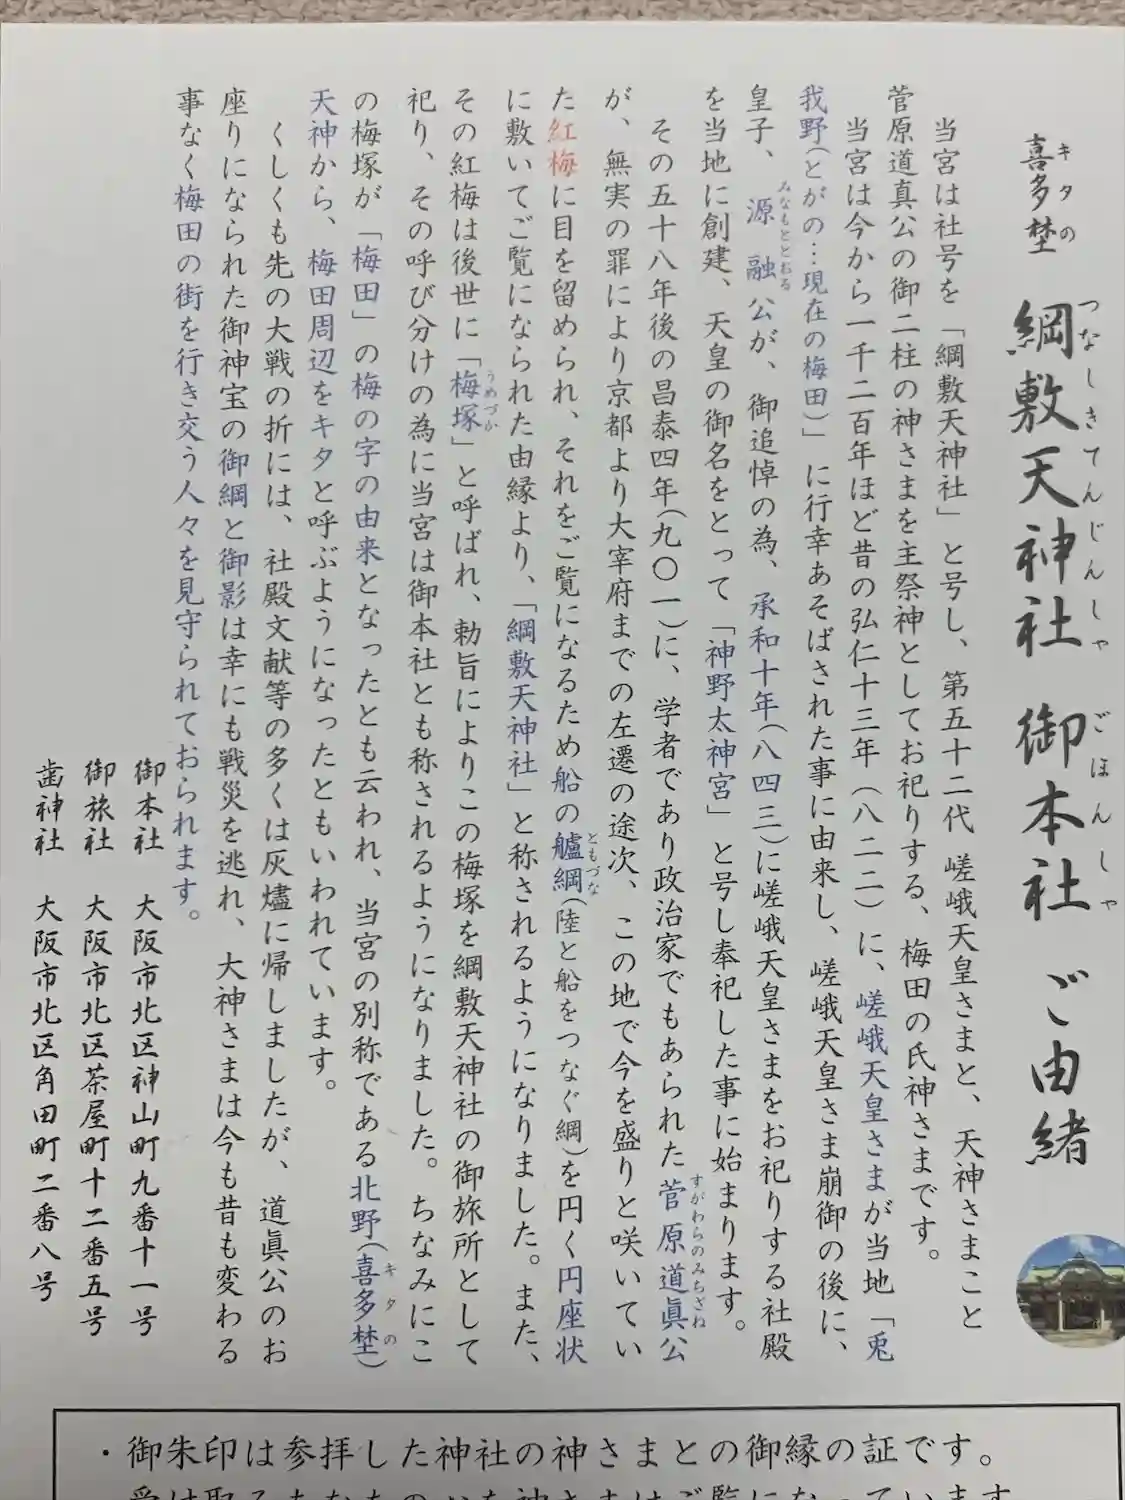 喜多埜 綱敷天神社 御本社 ご由緒
キタの つなしきてんじんしゃ ごほんしゃ
当宮は社号を「綱敷天神社」と号し、第五十二代 嵯峨天皇さまと、天神さまこと
菅原道真公の御二柱の神さまを主祭神としてお祀りする、梅田の氏神さまです。
当宮は今から一千二百年ほど昔の弘仁十三年(八二二)に、嵯峨天皇さまが当地「兎
我野(とがの…現在の梅田)」に行幸あそばされた事に由来し、嵯峨天皇さま崩御の後に、
皇子、源融公が、御追悼の為、承和十年(八四三)に嵯峨天皇さまをお祀りする社殿
みなもととおる
を当地に創建、天皇の御名をとって「神野太神宮」と号し奉祀した事に始まります。
その五十八年後の昌泰四年(九〇一)に、学者であり政治家でもあられた菅原道眞公
すがわらのみちざね
が、無実の罪により京都より大宰府までの左遷の途次、この地で今を盛りと咲いてい
た紅梅に目を留められ、それをご覧になるため船の艫綱(陸と船をつなぐ綱)を円く円座状
ともづな
に敷いてご覧になられた由縁より、「綱敷天神社」と称されるようになりました。また、
その紅梅は後世に「梅塚」と呼ばれ、勅旨によりこの梅塚を綱敷天神社の御旅所として
うめづか
祀り、その呼び分けの為に当宮は御本社とも称されるようになりました。ちなみにこ
の梅塚が「梅田」の梅の字の由来となったとも云われ、当宮の別称である北野(喜多埜)
キタの
天神から、梅田周辺をキタと呼ぶようになったともいわれています。
くしくも先の大戦の折には、社殿文献等の多くは灰燼に帰しましたが、道眞公のお
座りになられた御神宝の御綱と御影は幸にも戦災を逃れ、大神さまは今も昔も変わる
事なく梅田の街を行き交う人々を見守られておられます。
御本社 大阪市北区神山町九番十一号
御旅社 大阪市北区茶屋町十二番五号
歯神社 大阪市北区角田町二番八号
・御朱印は参拝した神社の神さまとの御縁の証です。